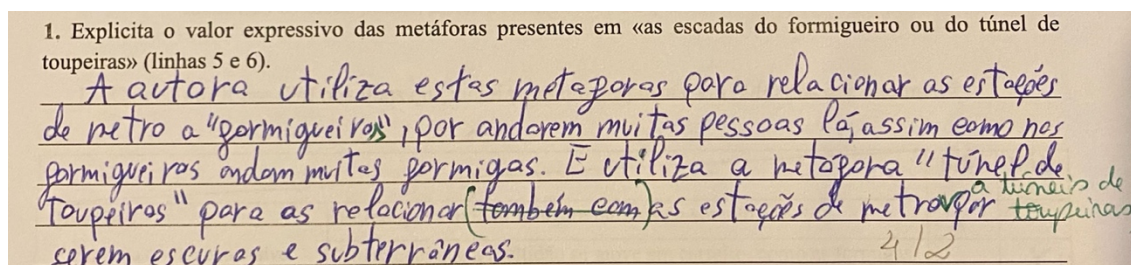 1. Explicita o valor expressivo das metáforas presentes em «as escadas do formigueiro ou do túnel de
toupeiras» (linhas 5 e 6).
A autora utiliza estas metaforas para relacionar as estações
de metro a "formigueiros", por andarem muitas pessoas lá, assim como nos
formigueiros andam muitas formigas. E utiliza a metáfora "túnel de
Toupeiras" para as relacionar (também com) as estações de metro por
a túneis de
toupeiras
serem escuras e subterrâneas.
4/2